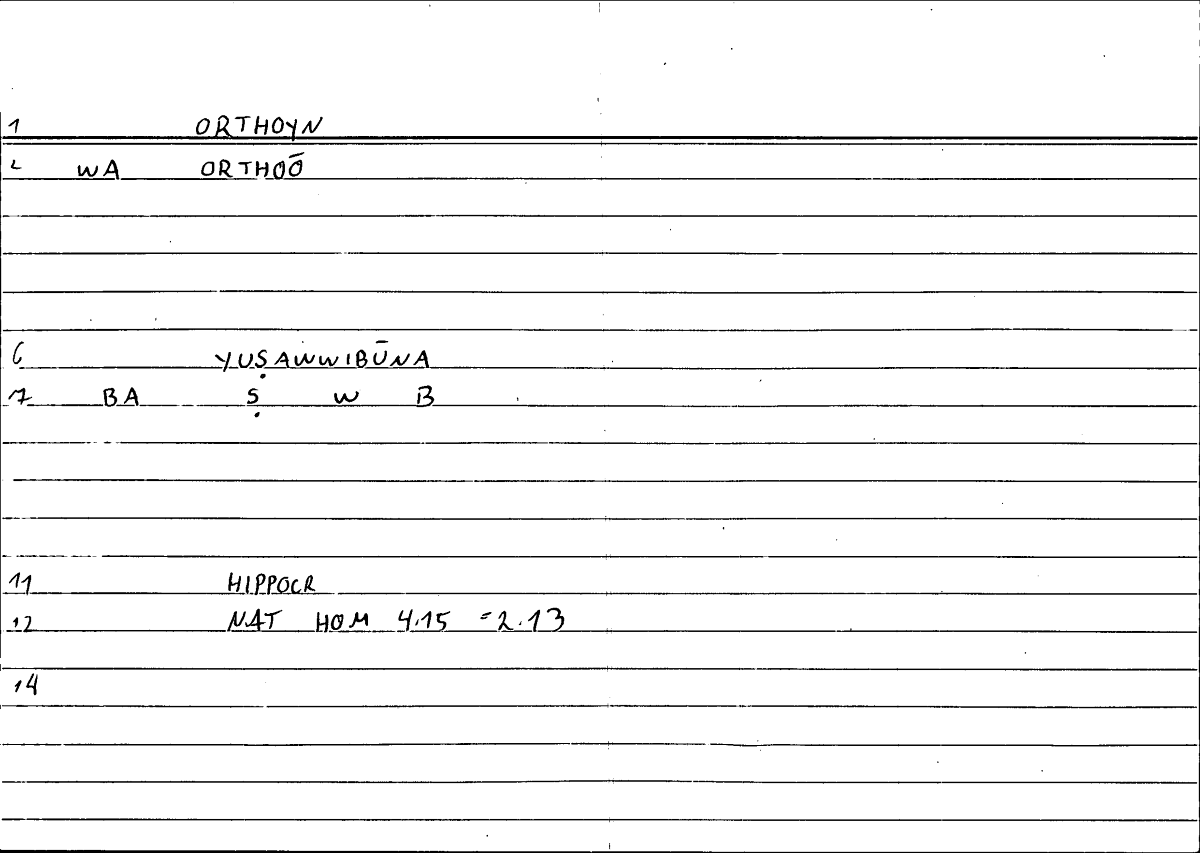 1 ORTHOYN
2 WA ORTHOŌ
6 YUṢAWWIBŪNA
7 BA Ṣ W B
11 HIPPOCR
12 NAT HOM 4.15 =2.13
14